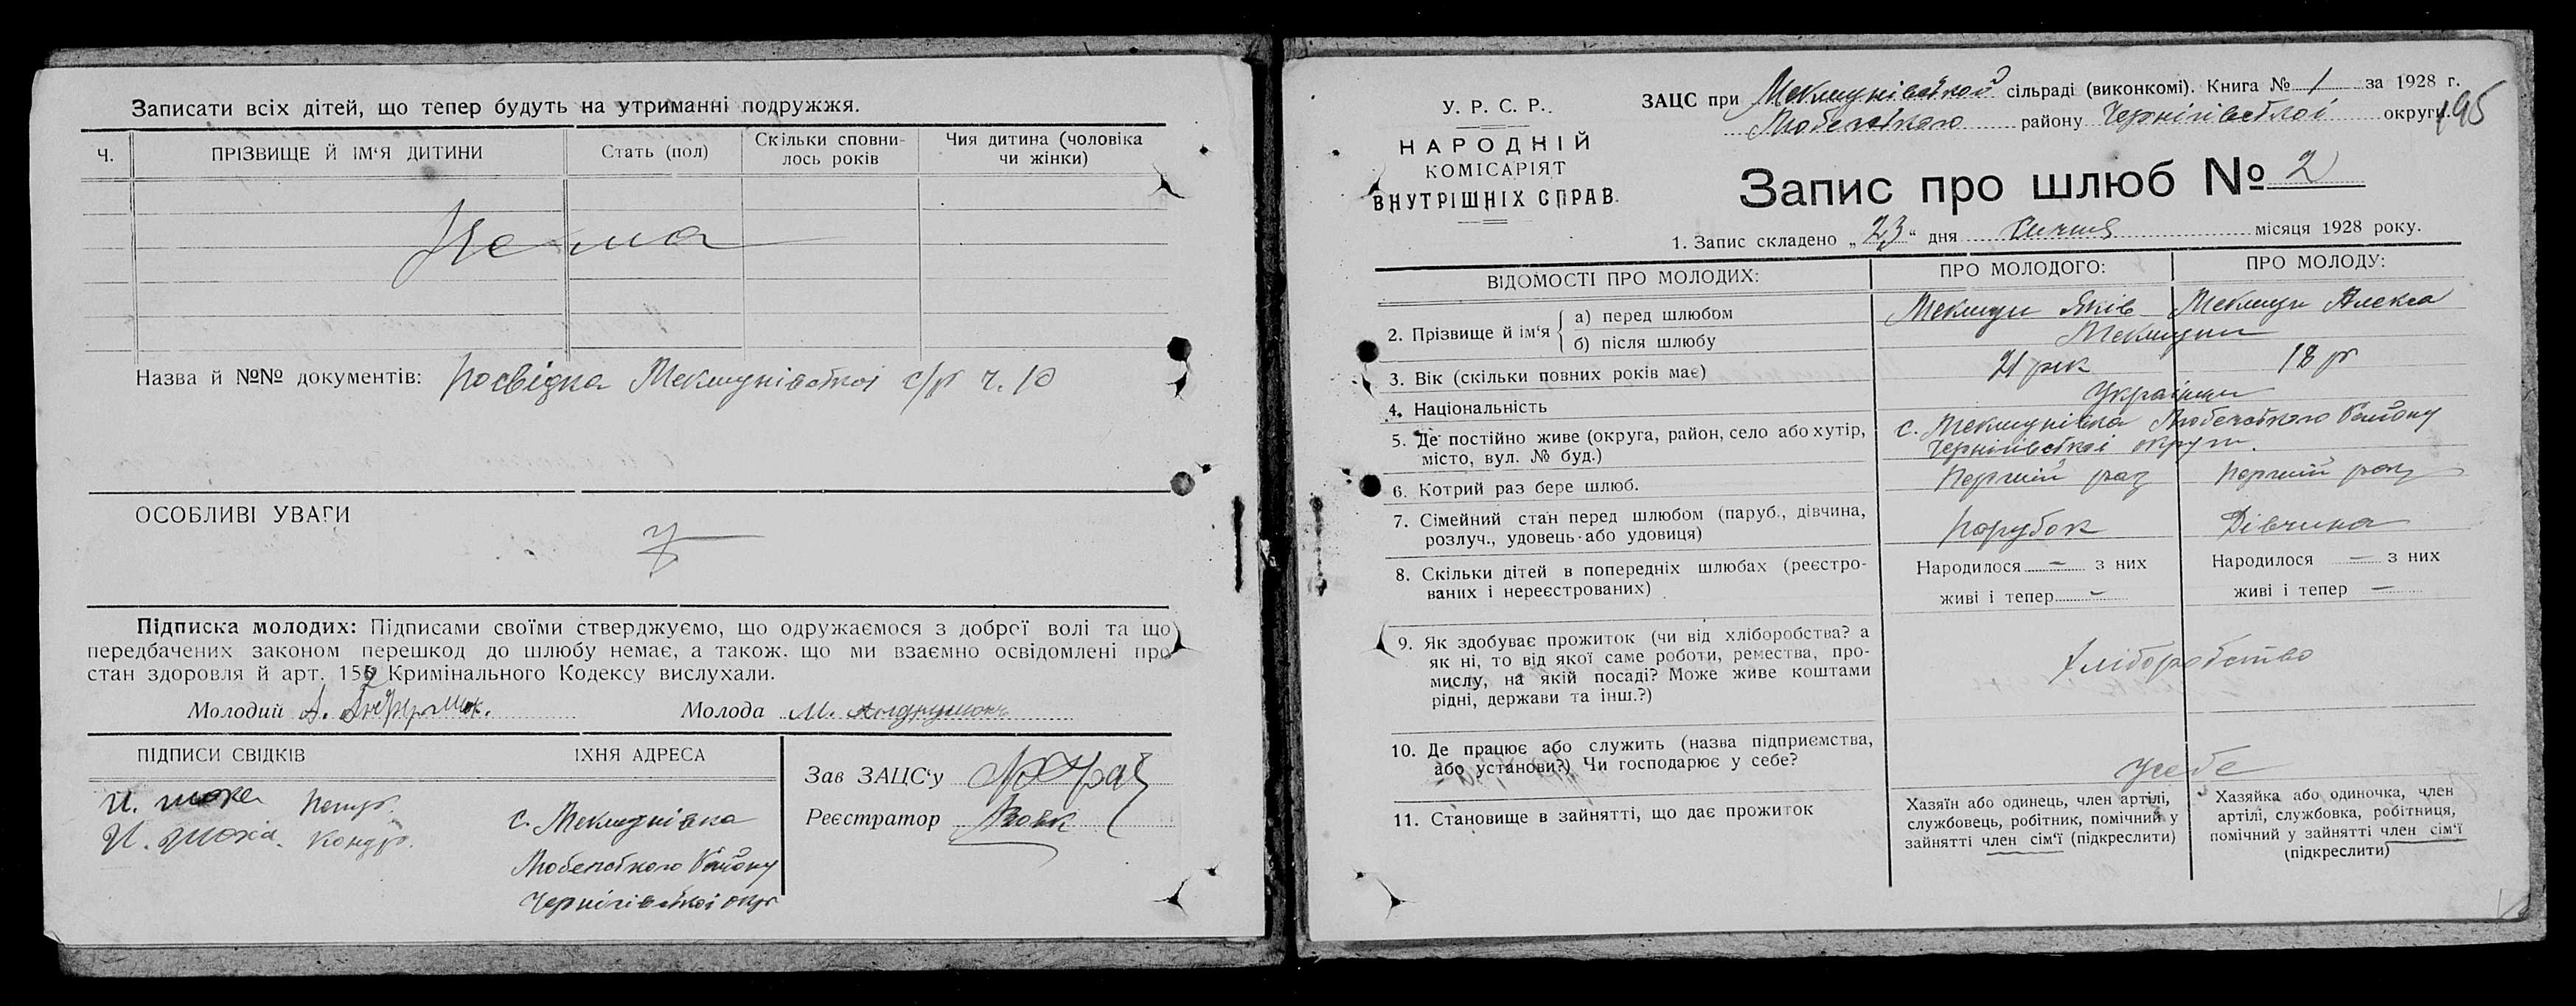 Записати всіх дітей, що тепер будуть на утриманні подружжя.
Ч.
ПРІЗВИЩЕ Й ІМ‘Я ДИТИНИ
Стать (пол)
Скільки сповни-
лось років
Чия дитина (чоловіка
чи жінки)
Нема
Назва й №№ документів: Посвідка с/р ч. 10
ОСОБЛИВІ УВАГИ
Підписка молодих: Підписами своїми стверджуємо, що одружаємося з доброї волі та що
передбачених законом перешкод до шлюбу немає, а також, що ми взаємно освідомлені про
стан здоровля й арт. 152 Кримінального Кодексу вислухали.
Молодий А.
Молода М.
ПІДПИСИ СВІДКІВ
ІХНЯ АДРЕСА
Зав ЗАЦС‘у
Реєстратор Вовк
с.
Любецького Району
Чернігівської окр
У. Р. С. Р.
НАРОДНІЙ
КОМІСАРІЯТ
ВНУТРІШНІХ СПРАВ.
ЗАЦС при сільраді (виконкомі). Книга № 1 за 1928 г.
Любецького району Чернігівської округи.
195
Запис про шлюб № 2
1. Запис складено „23“ дня Січня місяця 1928 року.
ВІДОМОСТІ ПРО МОЛОДИХ:
ПРО МОЛОДОГО:
ПРО МОЛОДУ:
2. Прізвище й ім‘я
а) перед шлюбом
Яків
б) після шлюбу
3. Вік (скільки повних років має)
21 рік
18 р
4. Національність
Українці
5. Де постійно живе (округа, район, село або хутір,
місто, вул. № буд.)
с. Любецького Району
Чернігівської округи.
6. Котрий раз бере шлюб.
Перший раз
Перший раз
7. Сімейний стан перед шлюбом (паруб., дівчина,
розлуч., удовець або удовиця)
Парубок
Дівчина
8. Скільки дітей в попередніх шлюбах (реєстро-
ваних і нереєстрованих)
Народилося — з них
живі і тепер —
Народилося — з них
живі і тепер —
9. Як здобуває прожиток (чи від хліборобства? а
як ні, то від якої саме роботи, ремества, про-
мислу, на якій посаді? Може живе коштами
рідні, держави та інш.?)
Хліборобство
10. Де працює або служить (назва підприємства,
або установи?) Чи господарює у себе?
усебе
11. Становище в зайнятті, що дає прожиток
Хазяїн або одинець, член артілі,
службовець, робітник, помічний у
зайнятті член сім‘ї (підкреслити)
Хазяйка або одиночка, член
артілі, службовка, робітниця,
помічний у зайнятті член сім‘ї
(підкреслити)